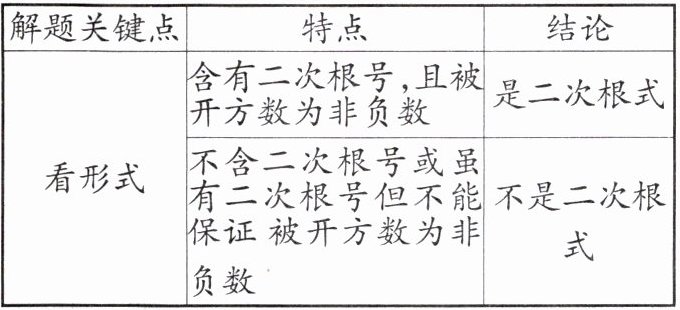 解题关键点 特点 结论
含有二次根号,且被
开方数为非负数
是二次根式
看形式
不含二次根号或虽
有二次根号但不能
保证 被开方数为非
负数
不是二次根
式